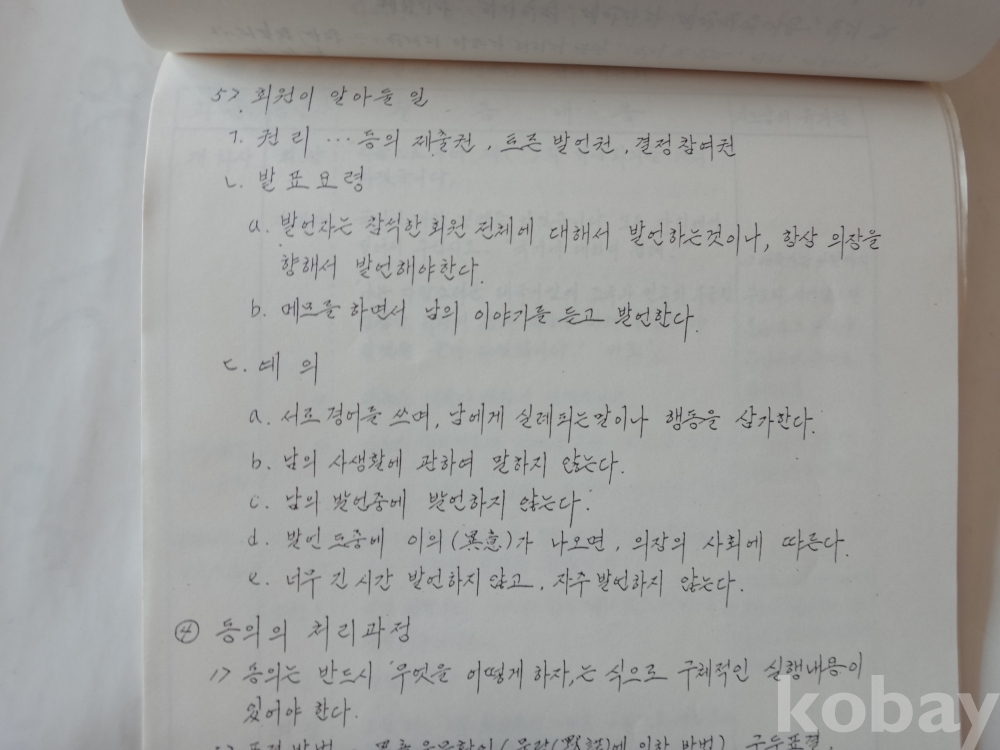 5> 회원이 알아둘 일
ㄱ. 권리 … 동의 제출권, 토론 발언권, 결정 참여권
ㄴ. 발표요령
a. 발언자는 참석한 회원 전체에 대해서 발언하는것이나, 항상 의장을
향해서 발언해야한다.
b. 메모를 하면서 남의 이야기를 듣고 발언한다.
ㄷ. 예의
a. 서로 경어를 쓰며, 남에게 실례되는말이나 행동을 삼가한다.
b. 남의 사생활에 관하여 말하지 않는다.
c. 남의 발언중에 발언하지 않는다.
d. 발언 도중에 이의(異意)가 나오면, 의장의 사회에 따른다.
e. 너무 긴 시간 발언하지 않고, 자주 발언하지 않는다.
④ 동의의 처리과정
1> 동의는 반드시 '무엇을 어떻게 하자,는 식으로 구체적인 실행내용이
있어야 한다.
표결 방법
kobay